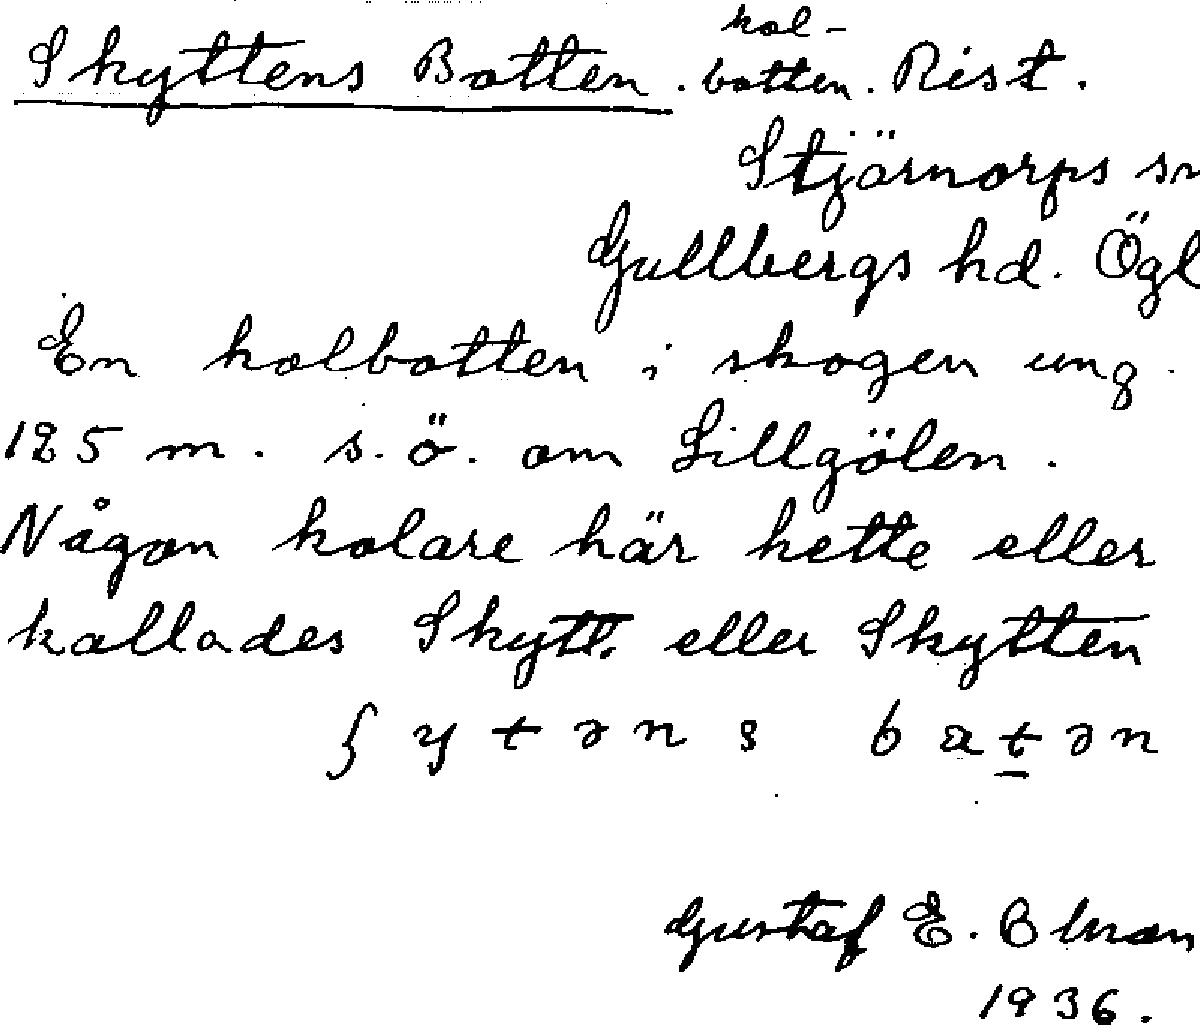 kol-
Skyttens Botten. botten. Rist.
Stjärnorps sn
Gullbergs hd. Ögl
En kolbotten i skogen ung.
125 m. s.ö. om Lillgölen.
Någon kolare här hette eller
kallades Skytt. eller Skytten
ʃytəns batən
Gustaf E.
1936.